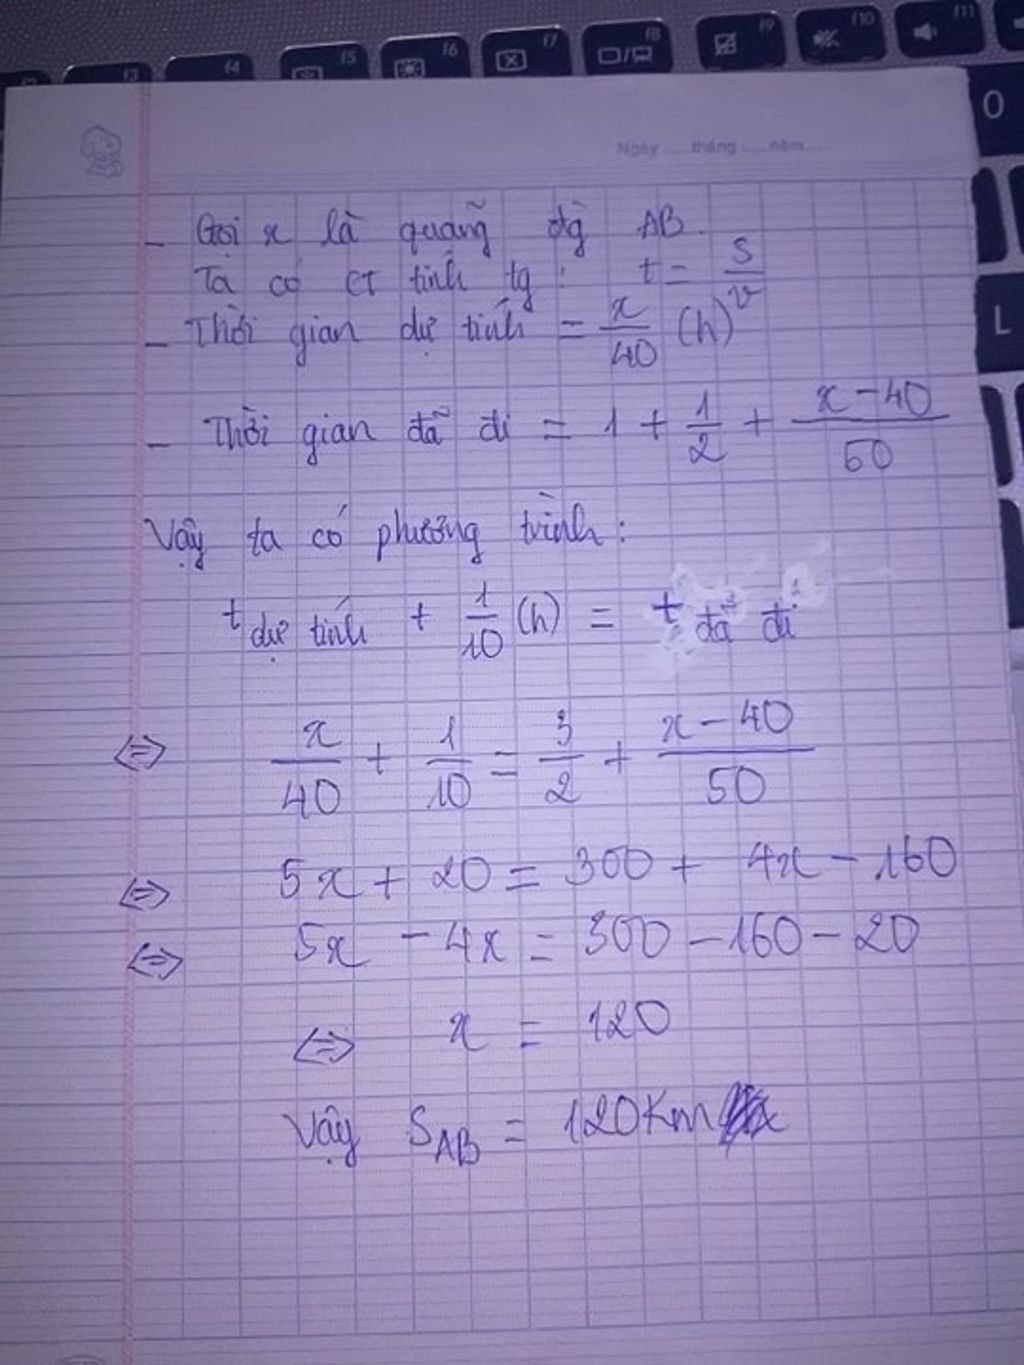 f3 f4 f5 f6 f7 f8 f9 f10 f11
0
L
Ngày.....tháng.....năm.....
- Gọi x là quãng đg AB.
Ta có CT tính tg: t = S/v
- Thời gian dự tính = x/40 (h)
- Thời gian đã đi = 1 + 1/2 + (x - 40)/50
Vậy ta có phương trình:
t dự tính + 1/10 (h) = t đã đi
<=> x/40 + 1/10 = 3/2 + (x - 40)/50
<=> 5x + 20 = 300 + 4x - 160
<=> 5x - 4x = 300 - 160 - 20
<=> x = 120
Vậy S_AB = 120Km